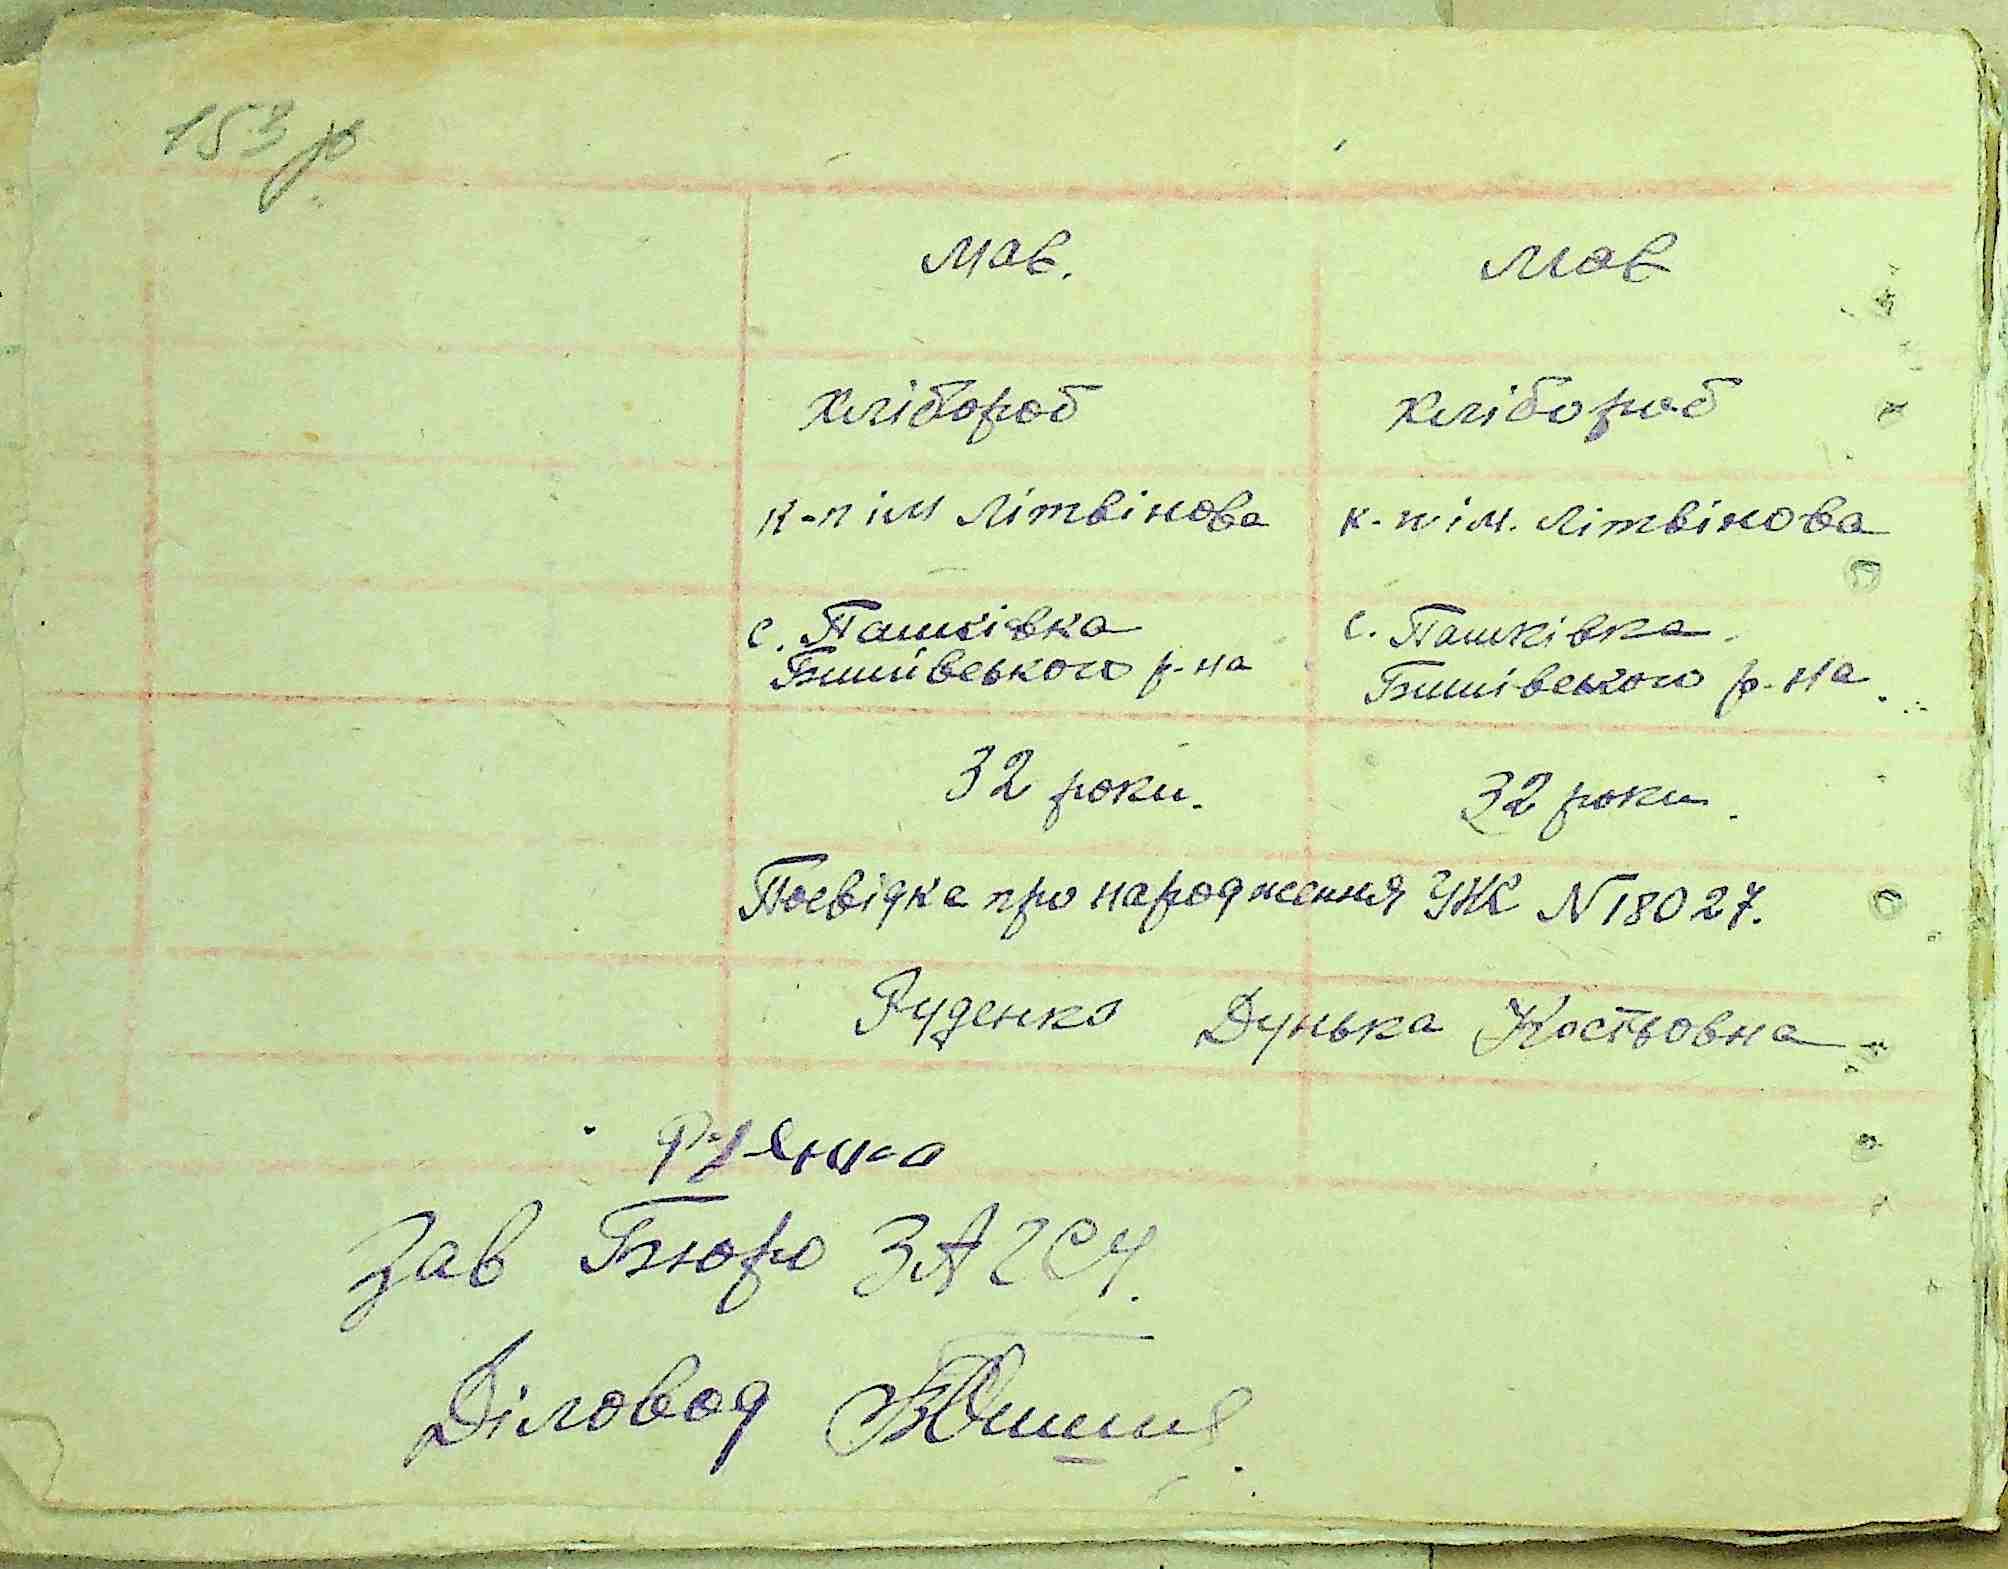 153
мав. мав
хлібороб хлібороб
к-п ім Літвінова к-п ім. Літвінова
с. Пашківка с. Пашківка.
Бишівського р-на Бишівського р-на.
32 роки. 32 роки.
Посвідка про народження УЖ N 18027.
Руденко Дунька Костьовна
Руденко
Зав Бюро ЗАГСУ.
Діловод